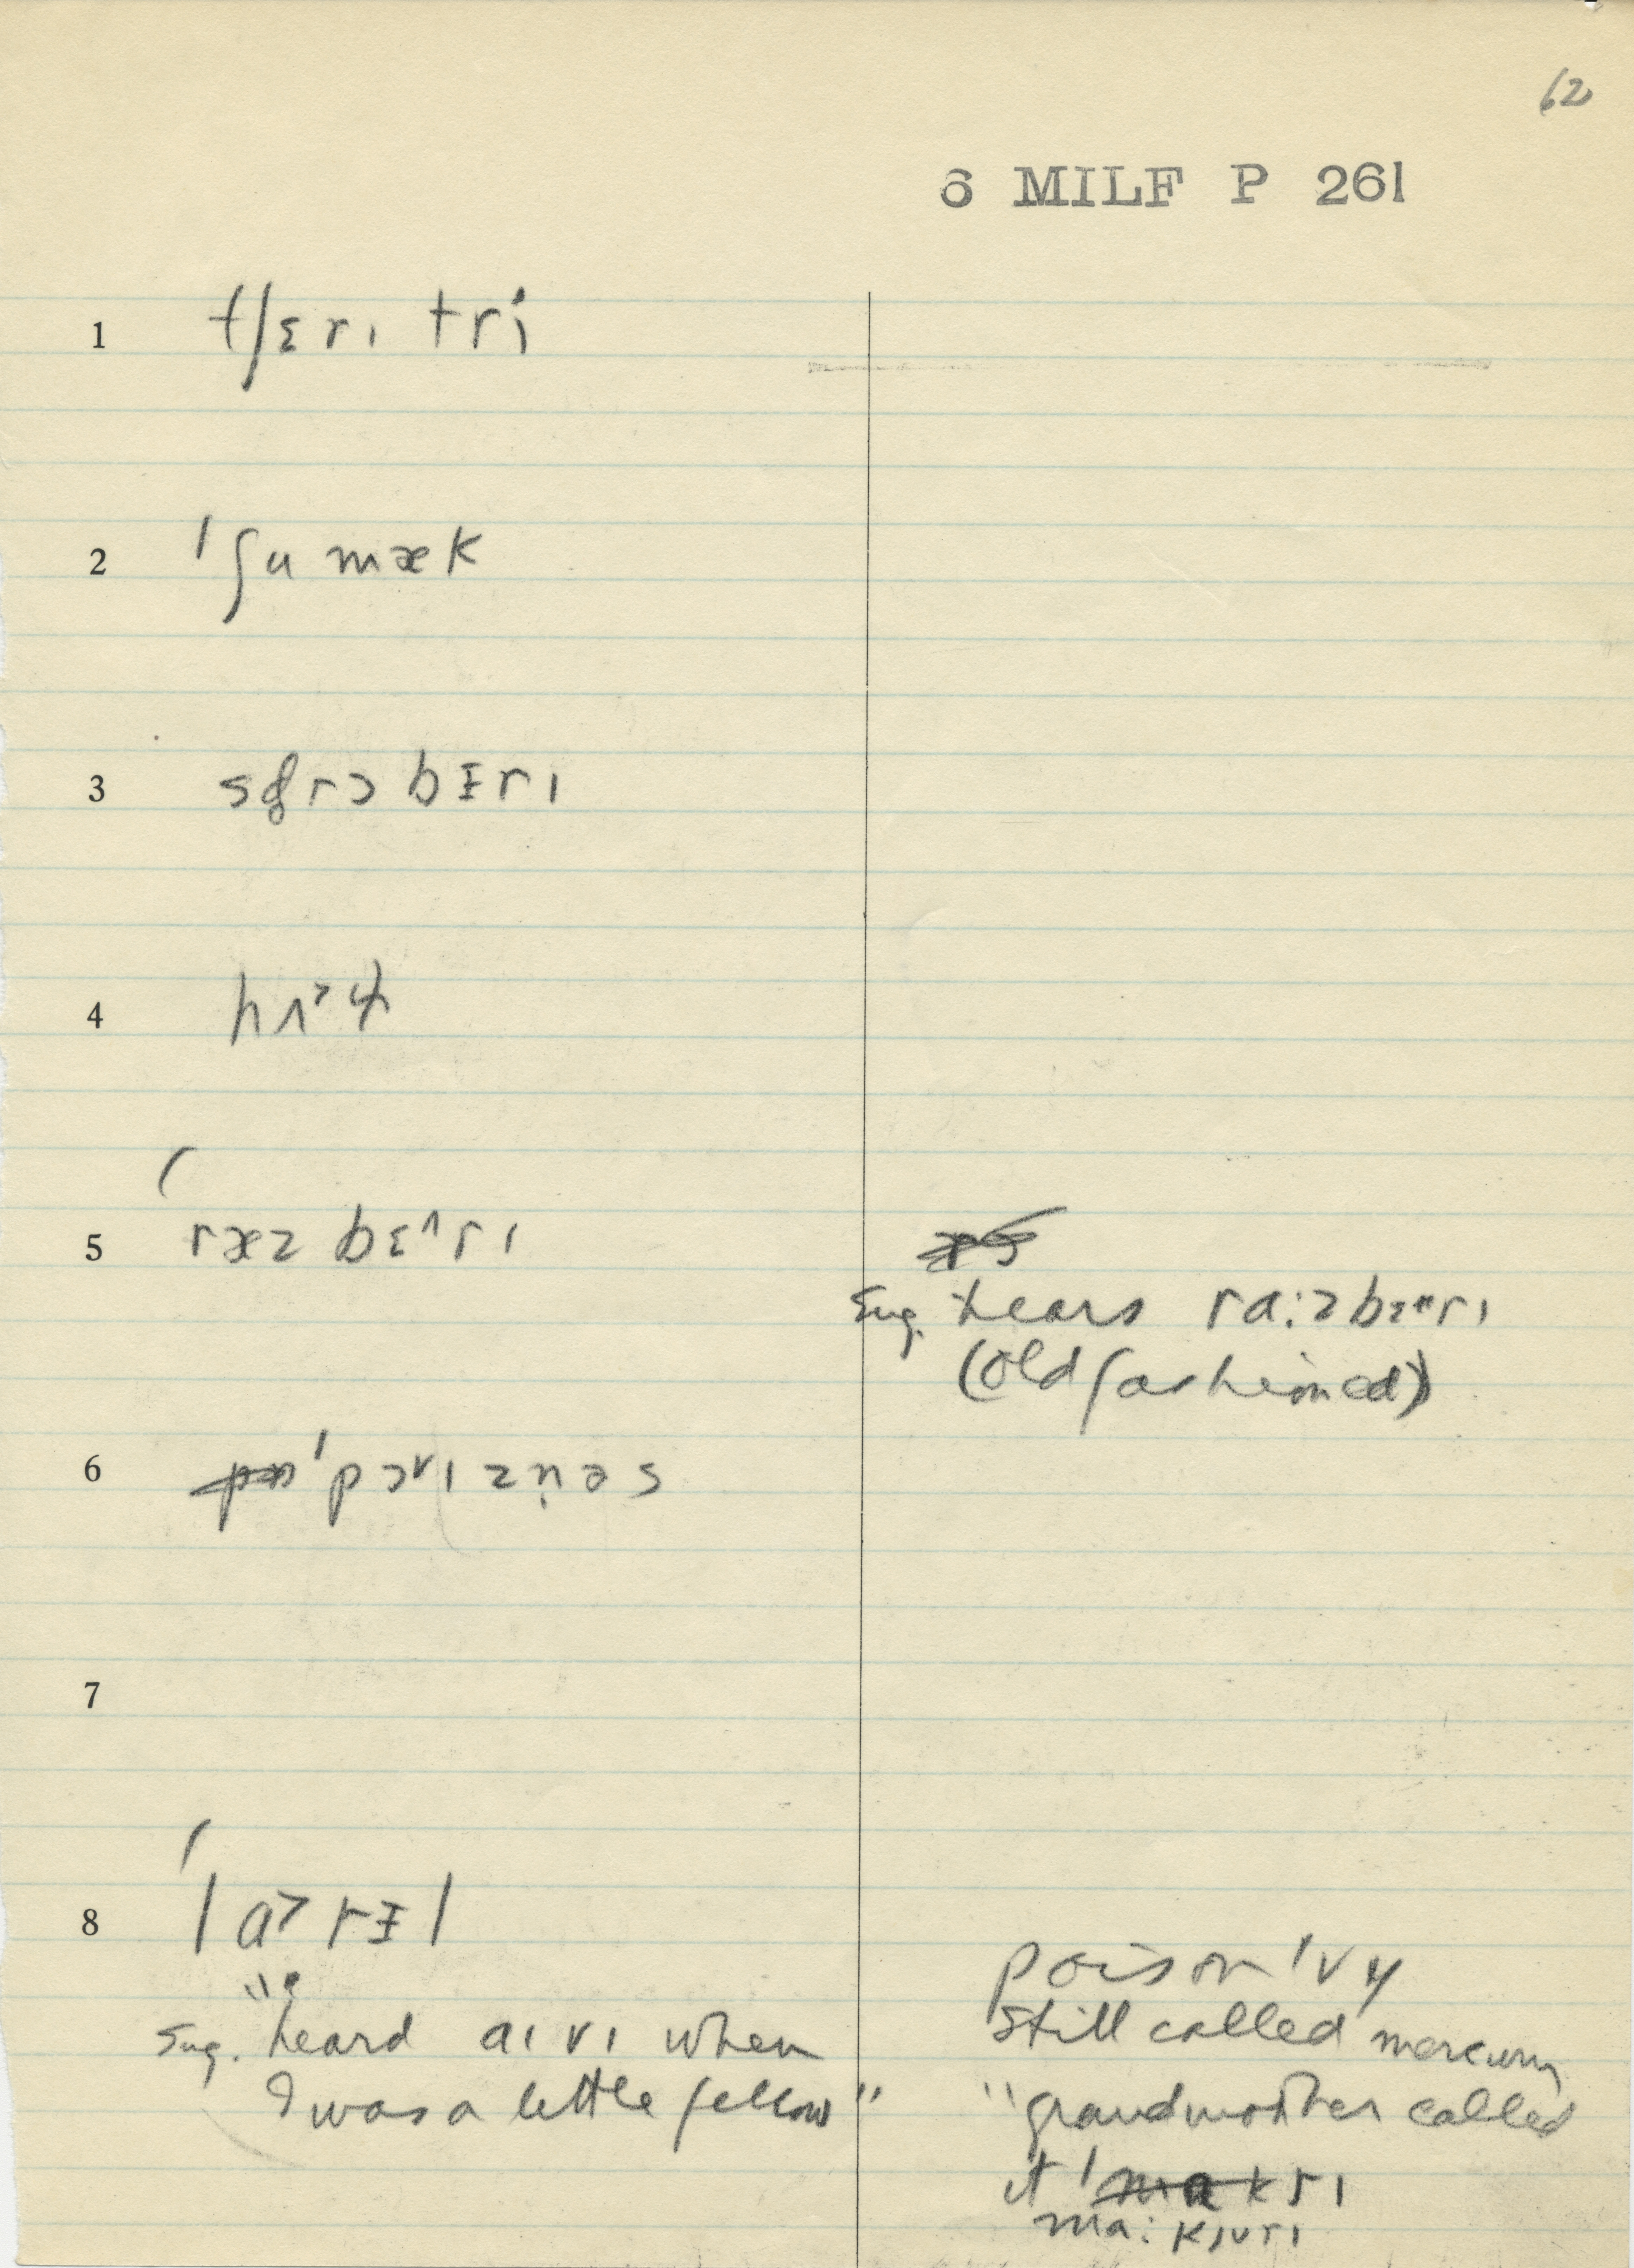 62
6 MILF P 261
1 tʃɛrɪ tri
2 ˈʃumæk
3 bɪrɪ
4
5 ˈræz bɛ^rɪ
Sug. hears ra:zb rɪ
(old fashioned)
6 ˈpɔ˅ɪzn̩əs
7
8 ˈlɑ˃rɪl
Sug. "heard aɪvɪ when
I was a little fellow"
poison ivy
still called mercury
"grandmother called
it ˈmakrɪ
ma:kjʊrɪ